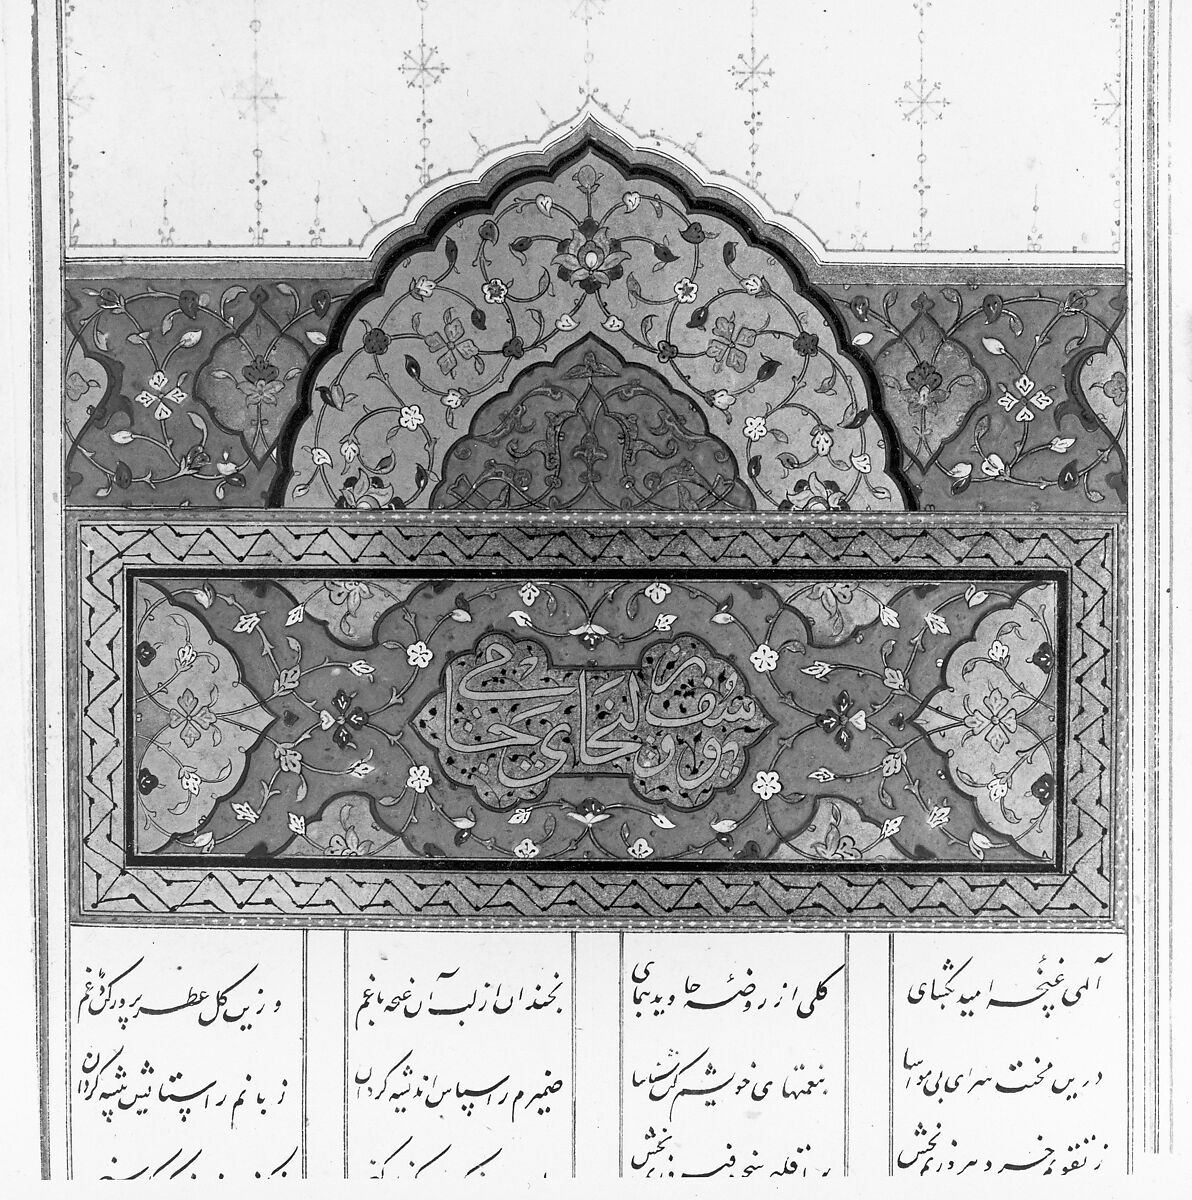 یوسف و زلیخای جامی
الهی غنچهٔ امید بگشای گلی از روضهٔ جاوید بنمای بخندان از لب آن غنچه باغم وزین گل عطرپرور کن دماغم
درین محنت سرای بی مواسا بنعمتهای خویشم کن شناسا ضمیرم را سپاس اندیشه گردان زبانم را ستایش پیشه گردان
ز تقویم خرد بهروزیم بخش بر اقلیم سخن فیروزیم بخش